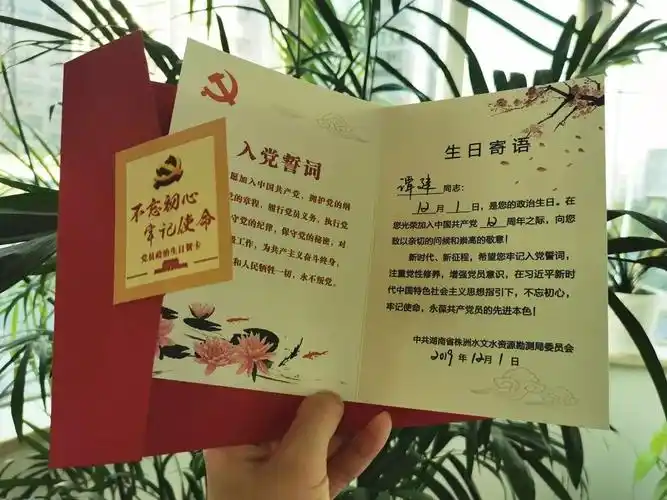 不忘初心
牢记使命
党员政治生日贺卡
入党誓词
愿加入中国共产党，拥护党的纲
党的章程，履行党员义务，执行党
守党的纪律，保守党的秘密，对
工作，为共产主义奋斗终身，
和人民牺牲一切，永不叛党。
生日寄语
谭建 同志：
12月1日，是您的政治生日。在
您光荣加入中国共产党 12 周年之际，向您
致以亲切的问候和崇高的敬意！
新时代、新征程，希望您牢记入党誓词，
注重党性修养，增强党员意识，在习近平新时
代中国特色社会主义思想指引下，不忘初心，
牢记使命，永葆共产党员的先进本色！
中共湖南省株洲水文水资源勘测局委员会
2019年12月1日